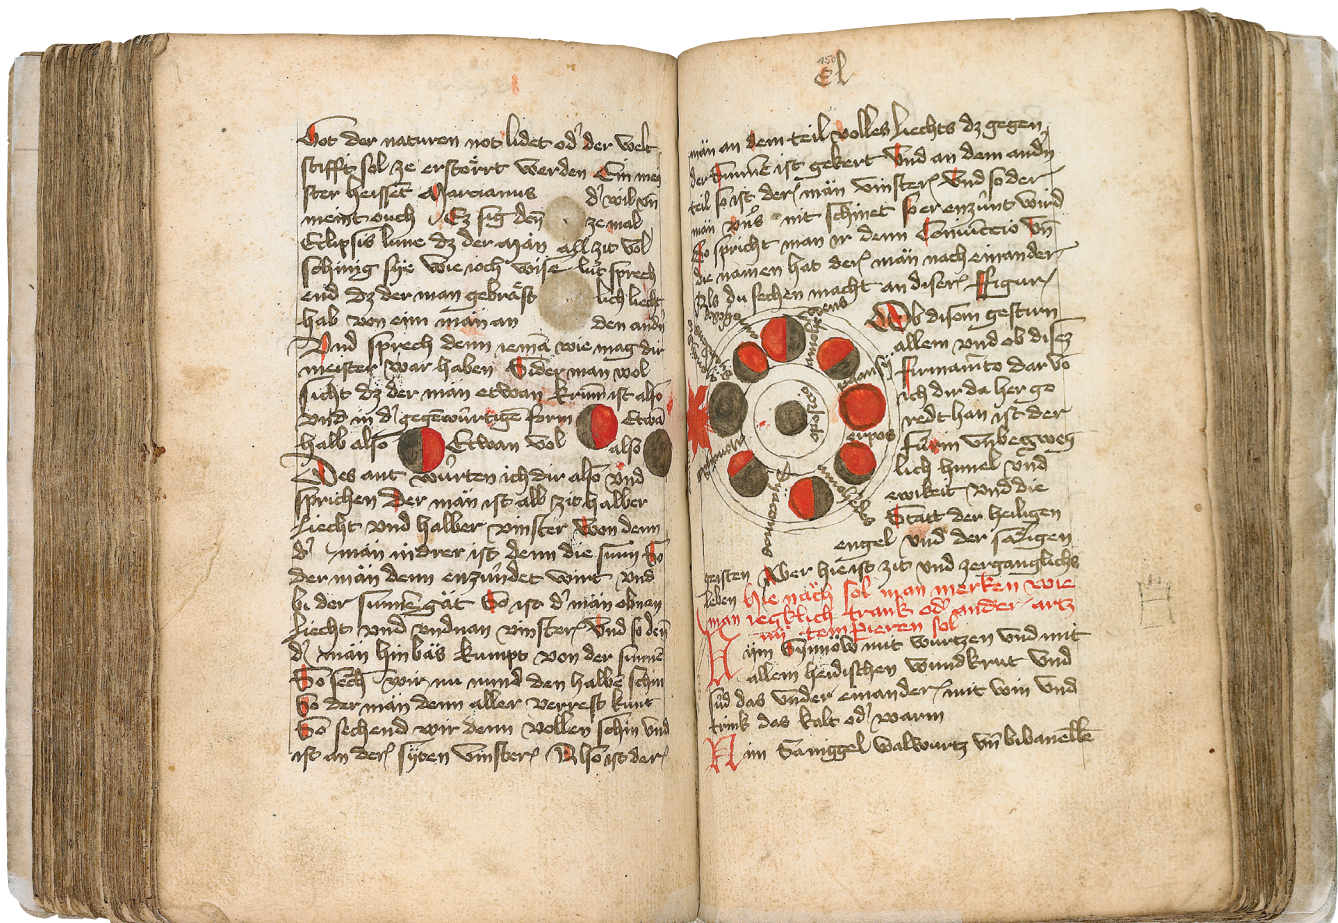 Got der naturen not lidet od' der welt
stifft sol ze erstörrt werden Ein mey
ster heisset Marcianus d' wil vn̄
meint ouch Ez sig den ze mal
Eclipsis lune dz der mān all zit vol
schinig sye Wie
end dz der man gebräst lich liecht
hab von eim mān an den andn̄
Vnd sprech denn iemā wie mag dir
meister war haben Sider man wol
sicht dz der mān etwan krum̄ ist also
vnd in d' gegenwürtige form Etwā
halb also Etwan vol also
Des ant würten ich dir also vnd
sprichen Der mān ist all zit halber
liecht vnd halber vinster Von denn
d' mān indrer ist denn die sunn So
der mān denn enzündet wirt vnd
bi der sunne gāt So ist d' mān obnen
liecht vnd vndnan vinster Vnd so den̄
d' mān hin bās kumpt von der sunne
So sech wir nu nund den halbē schin
So der mān denn aller verrest kunt
So sechend wir denn vollen schin vnd
ist an der syten vinster Also ist der
150
El
mān an dem teil volles liechts dz gegen
der sunne ist gekert Vnd an dem andn̄
teil so ist der mān vinster Vnd so der
mān vns nit schinet so er enzünt wird
So spricht man ir denn Coniunccio Vn̄
die namen hat der mān nach einander
Als du sechen macht an diser Figur
Ob disem gestirn
allem vnd ob disez
firmamēto dar vo
ich dir da her ge
redt han ist der
vnbegweg
lich himel vnd
ewikeit vnd die
Statt der heiligen
engel vnd der säligen
geisten Aber hie ist zit vnd zergangklichs
leben Hie nāch sol man merken wie
man iegklich trank od' ander artz
nii tempieren sol
Nim Synnöw mit wurtzen vnd mit
allem heidischen wundkrut vnd
süd das vnder einander mit win vnd
trink das kalt od' warm
Nim Saniggel walwurtz vn̄ bibanelle